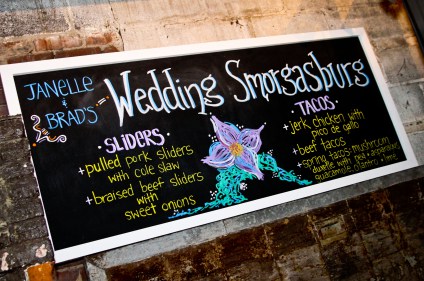 JANELLE
& BRAD'S
Wedding Smorgasburg
• SLIDERS •
+ pulled pork sliders
with cole slaw
+ braised beef sliders
with
sweet onions
• TACOS •
+ jerk chicken with
pico de gallo
+ beef tacos
+ spring tacos - mushroom
duxelle with pea + asparagus
guacamole cilantro + lime